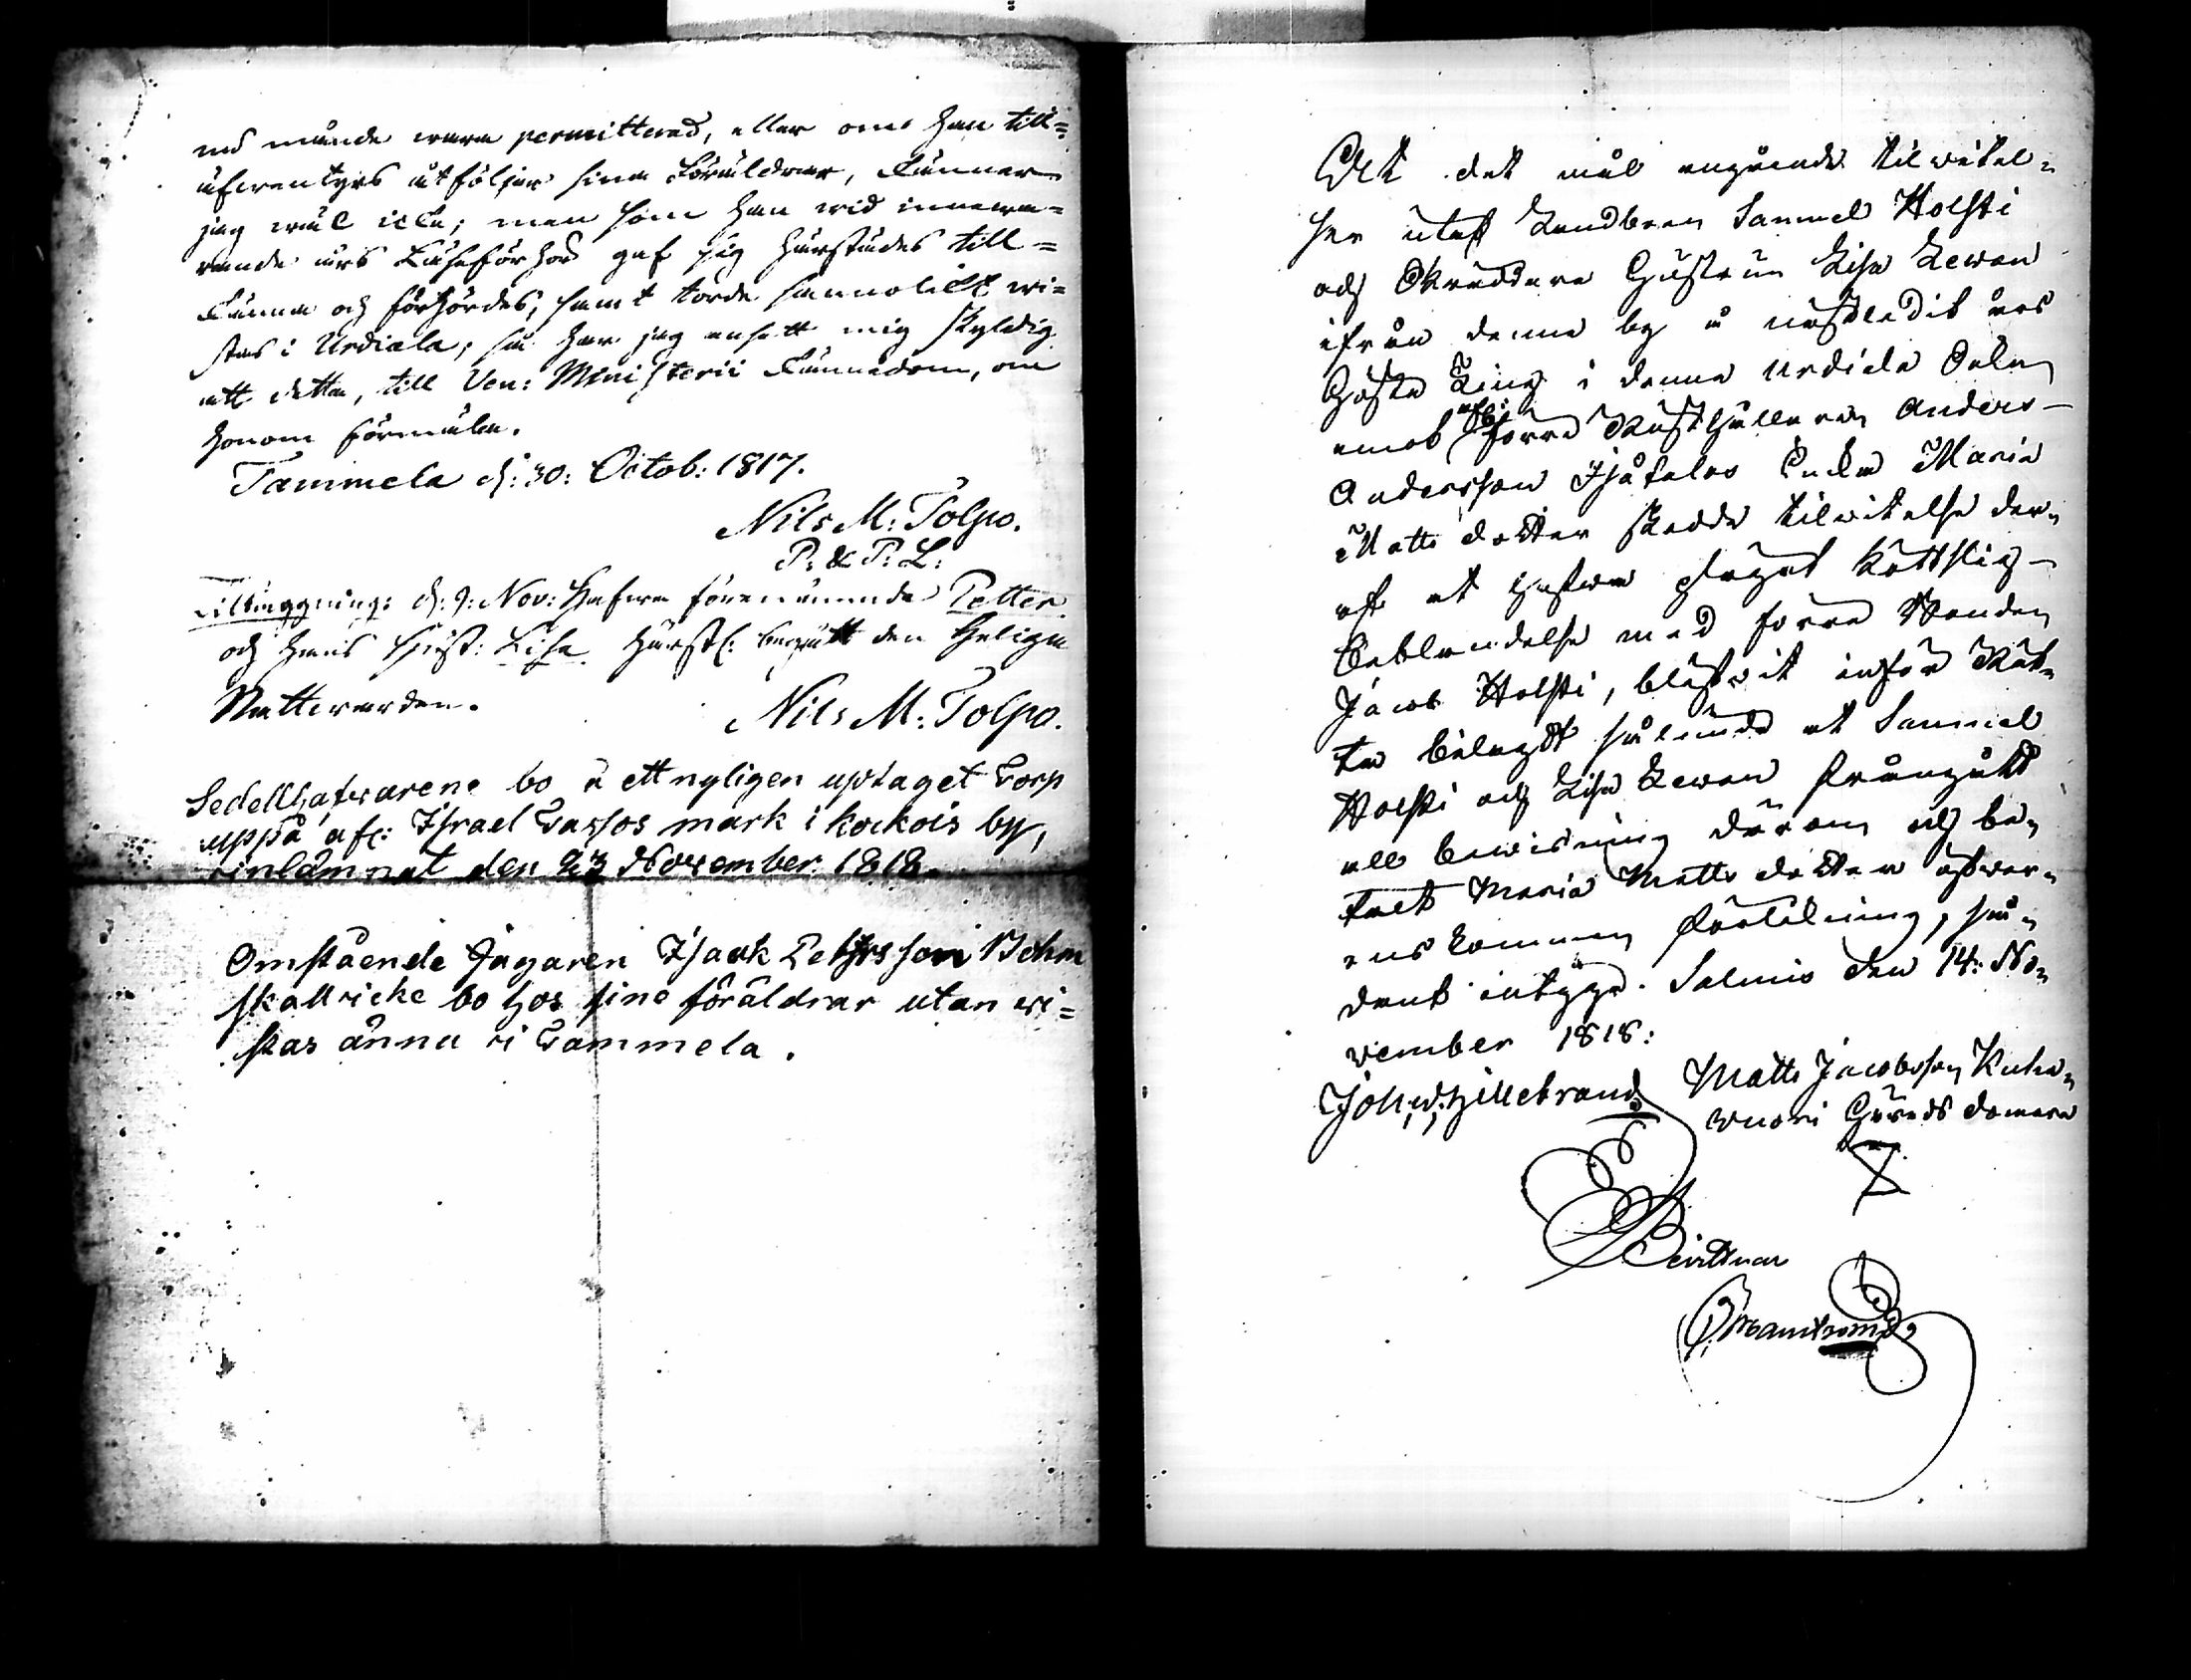 nu månde wara permitterad, eller om han till=
äfwentyrs åtföljer sina Föräldrar, känner
jag wäl icke; men som han wid innewa=
rande års Läseförhör gaf sig härstädes till=
känna och förhördes, samt torde sannolikt wi=
stas i Urdiala, så har jag ansett mig skyldig
att detta, till Ven: Ministerii kännedom, om
honom förmäla.
Tammela d: 30: Octob: 1817.
Nils M: Tolpo.
P: & P: L:
Tilläggning: d: 9: Nov: Hafwa förenämnde Petter
och hans Hust: Lisa härst: begått den Heliga
Nattwarden.
Nils M: Tolpo.
Sedellhafwarene bo å ett nyligen uptaget Torp
uppå afl: Israel Tassos mark i kockois by,
inlämnat den 23 November 1818.
Omstående Jägaren Isack Pettersson Bohm
skall icke bo hos sine föräldrar utan wi=
stas ännu i Tammela.
At det mål angående tilwitel=
ser utaf Landboen Samuel Holsti
och Skräddare Hustrun Lisa Lewon
ifrån denne by å nästledit års
Höste Ting i denna Urdiala Sokn
emot afl: förre Rusthållaren Anders
Andersson Isotalos Enka Maria
Matts dotter skedde tilwitelse der=
af at hafwa plägat köttslig
beblandelse med förre Bonden
Jacob Holsti, blifwit inför Rät=
ta bilagdt sålunde at Samuel
Holsti och Lisa Lewon frångått
all bewisning därom och be=
talt Maria Matts dotter öfwer=
ens kommen förlikning, så=
dant intyga. Salmis den 14: No=
vember 1818:
Joh: W: Hillebrand
Matts Jacobsson Kuha=
wuori Härads domare
Bewittnar